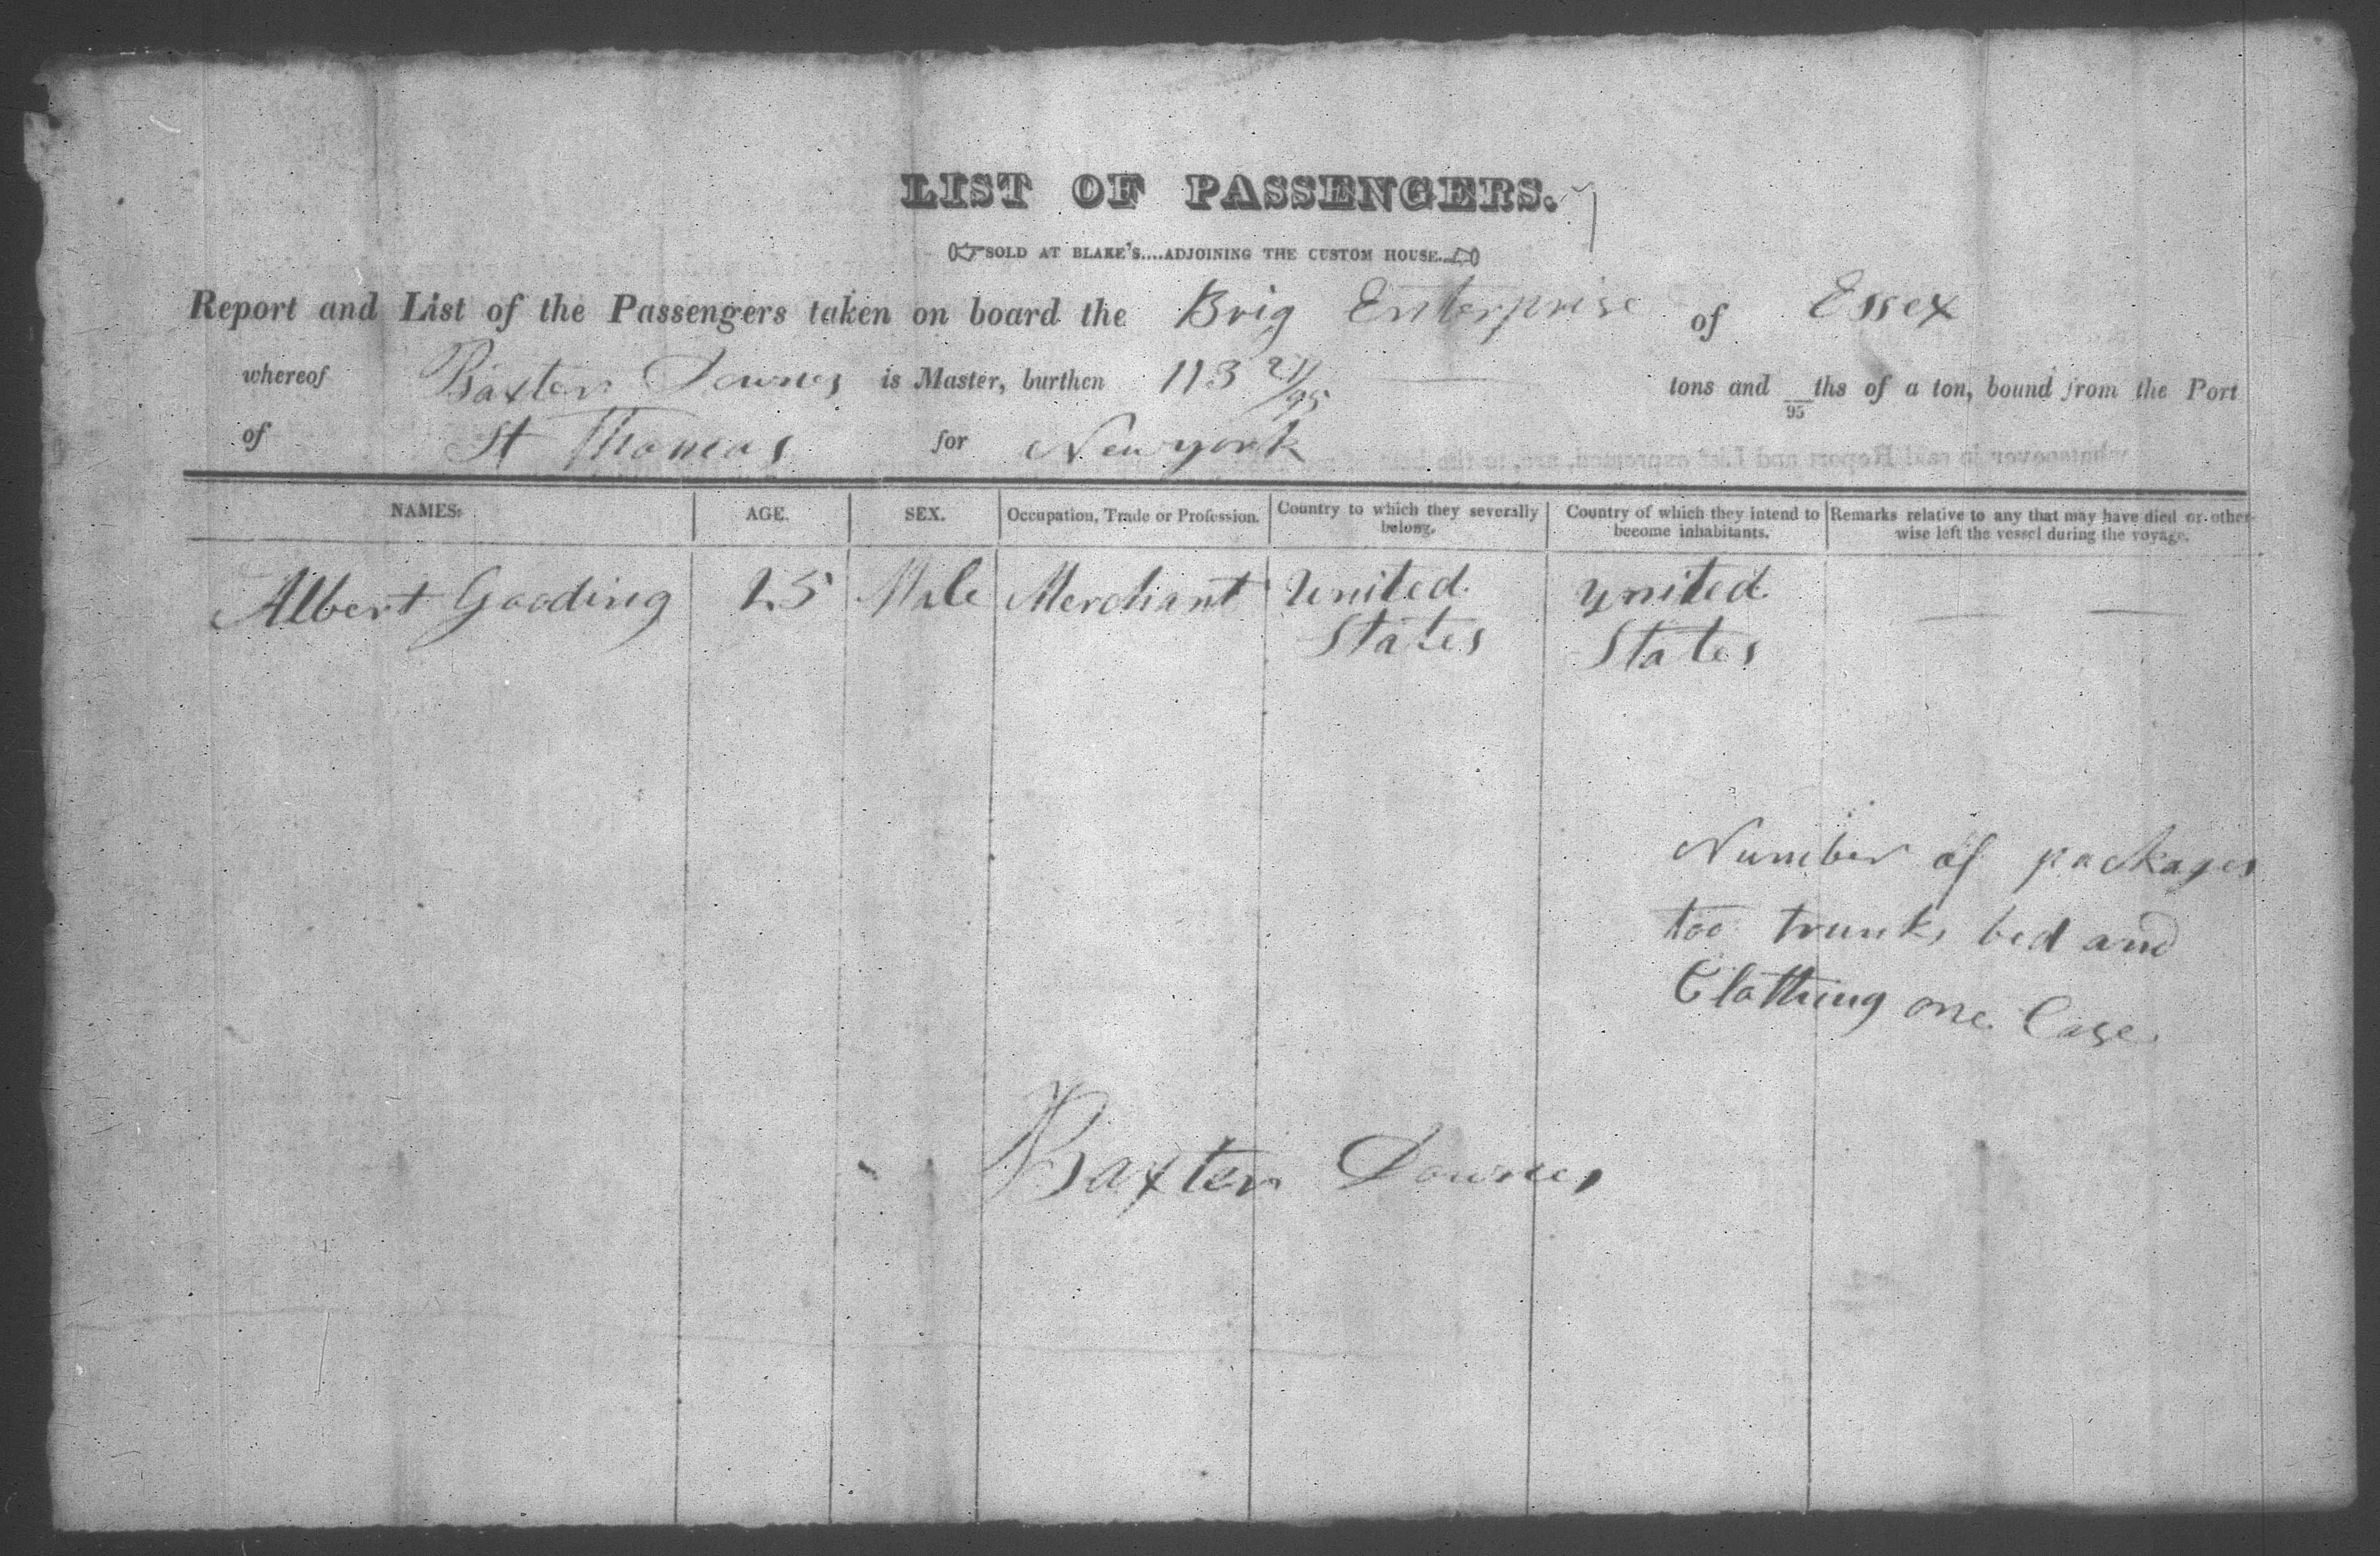 LIST OF PASSENGERS.
SOLD AT BLAKE'S....ADJOINING THE CUSTOM HOUSE.
Report and List of the Passengers taken on board the Brig Enterprise of Essex
whereof Baxter Downes is Master, burthen 113 21/95 tons and 95 ths of a ton, bound from the Port
of St Thomas for New york
whatsoever in said Report and List expressed, are, to the best of
NAMES. AGE. SEX. Occupation, Trade or Profession. Country to which they severally belong. Country of which they intend to become inhabitants. Remarks relative to any that may have died or otherwise left the vessel during the voyage.
Albert Gooding 25 Male Merchant United States United States — —
Number of packages
too trunks bed and
Clothing one Case
Baxter Downes